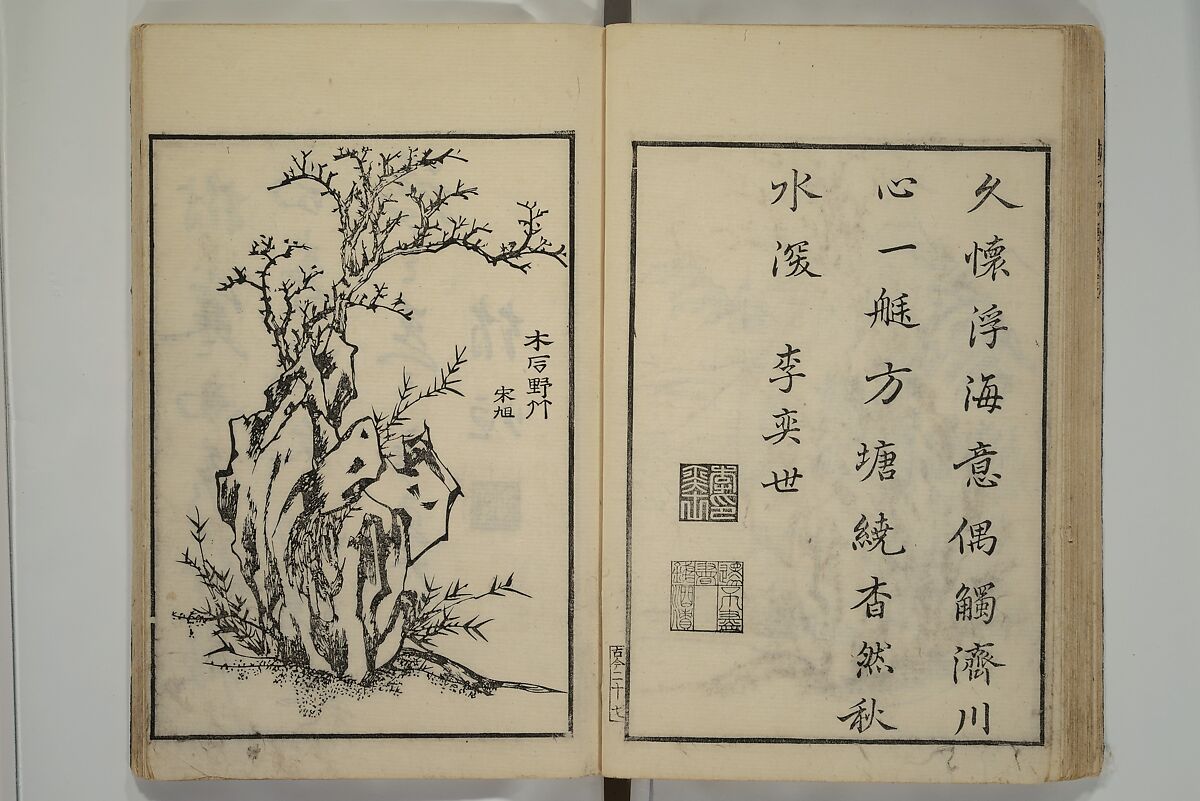 久懷浮海意偶觸濟川
心一艇方塘繞杳然秋
水深 李奕世
古今二十七
木石野竹
宋旭